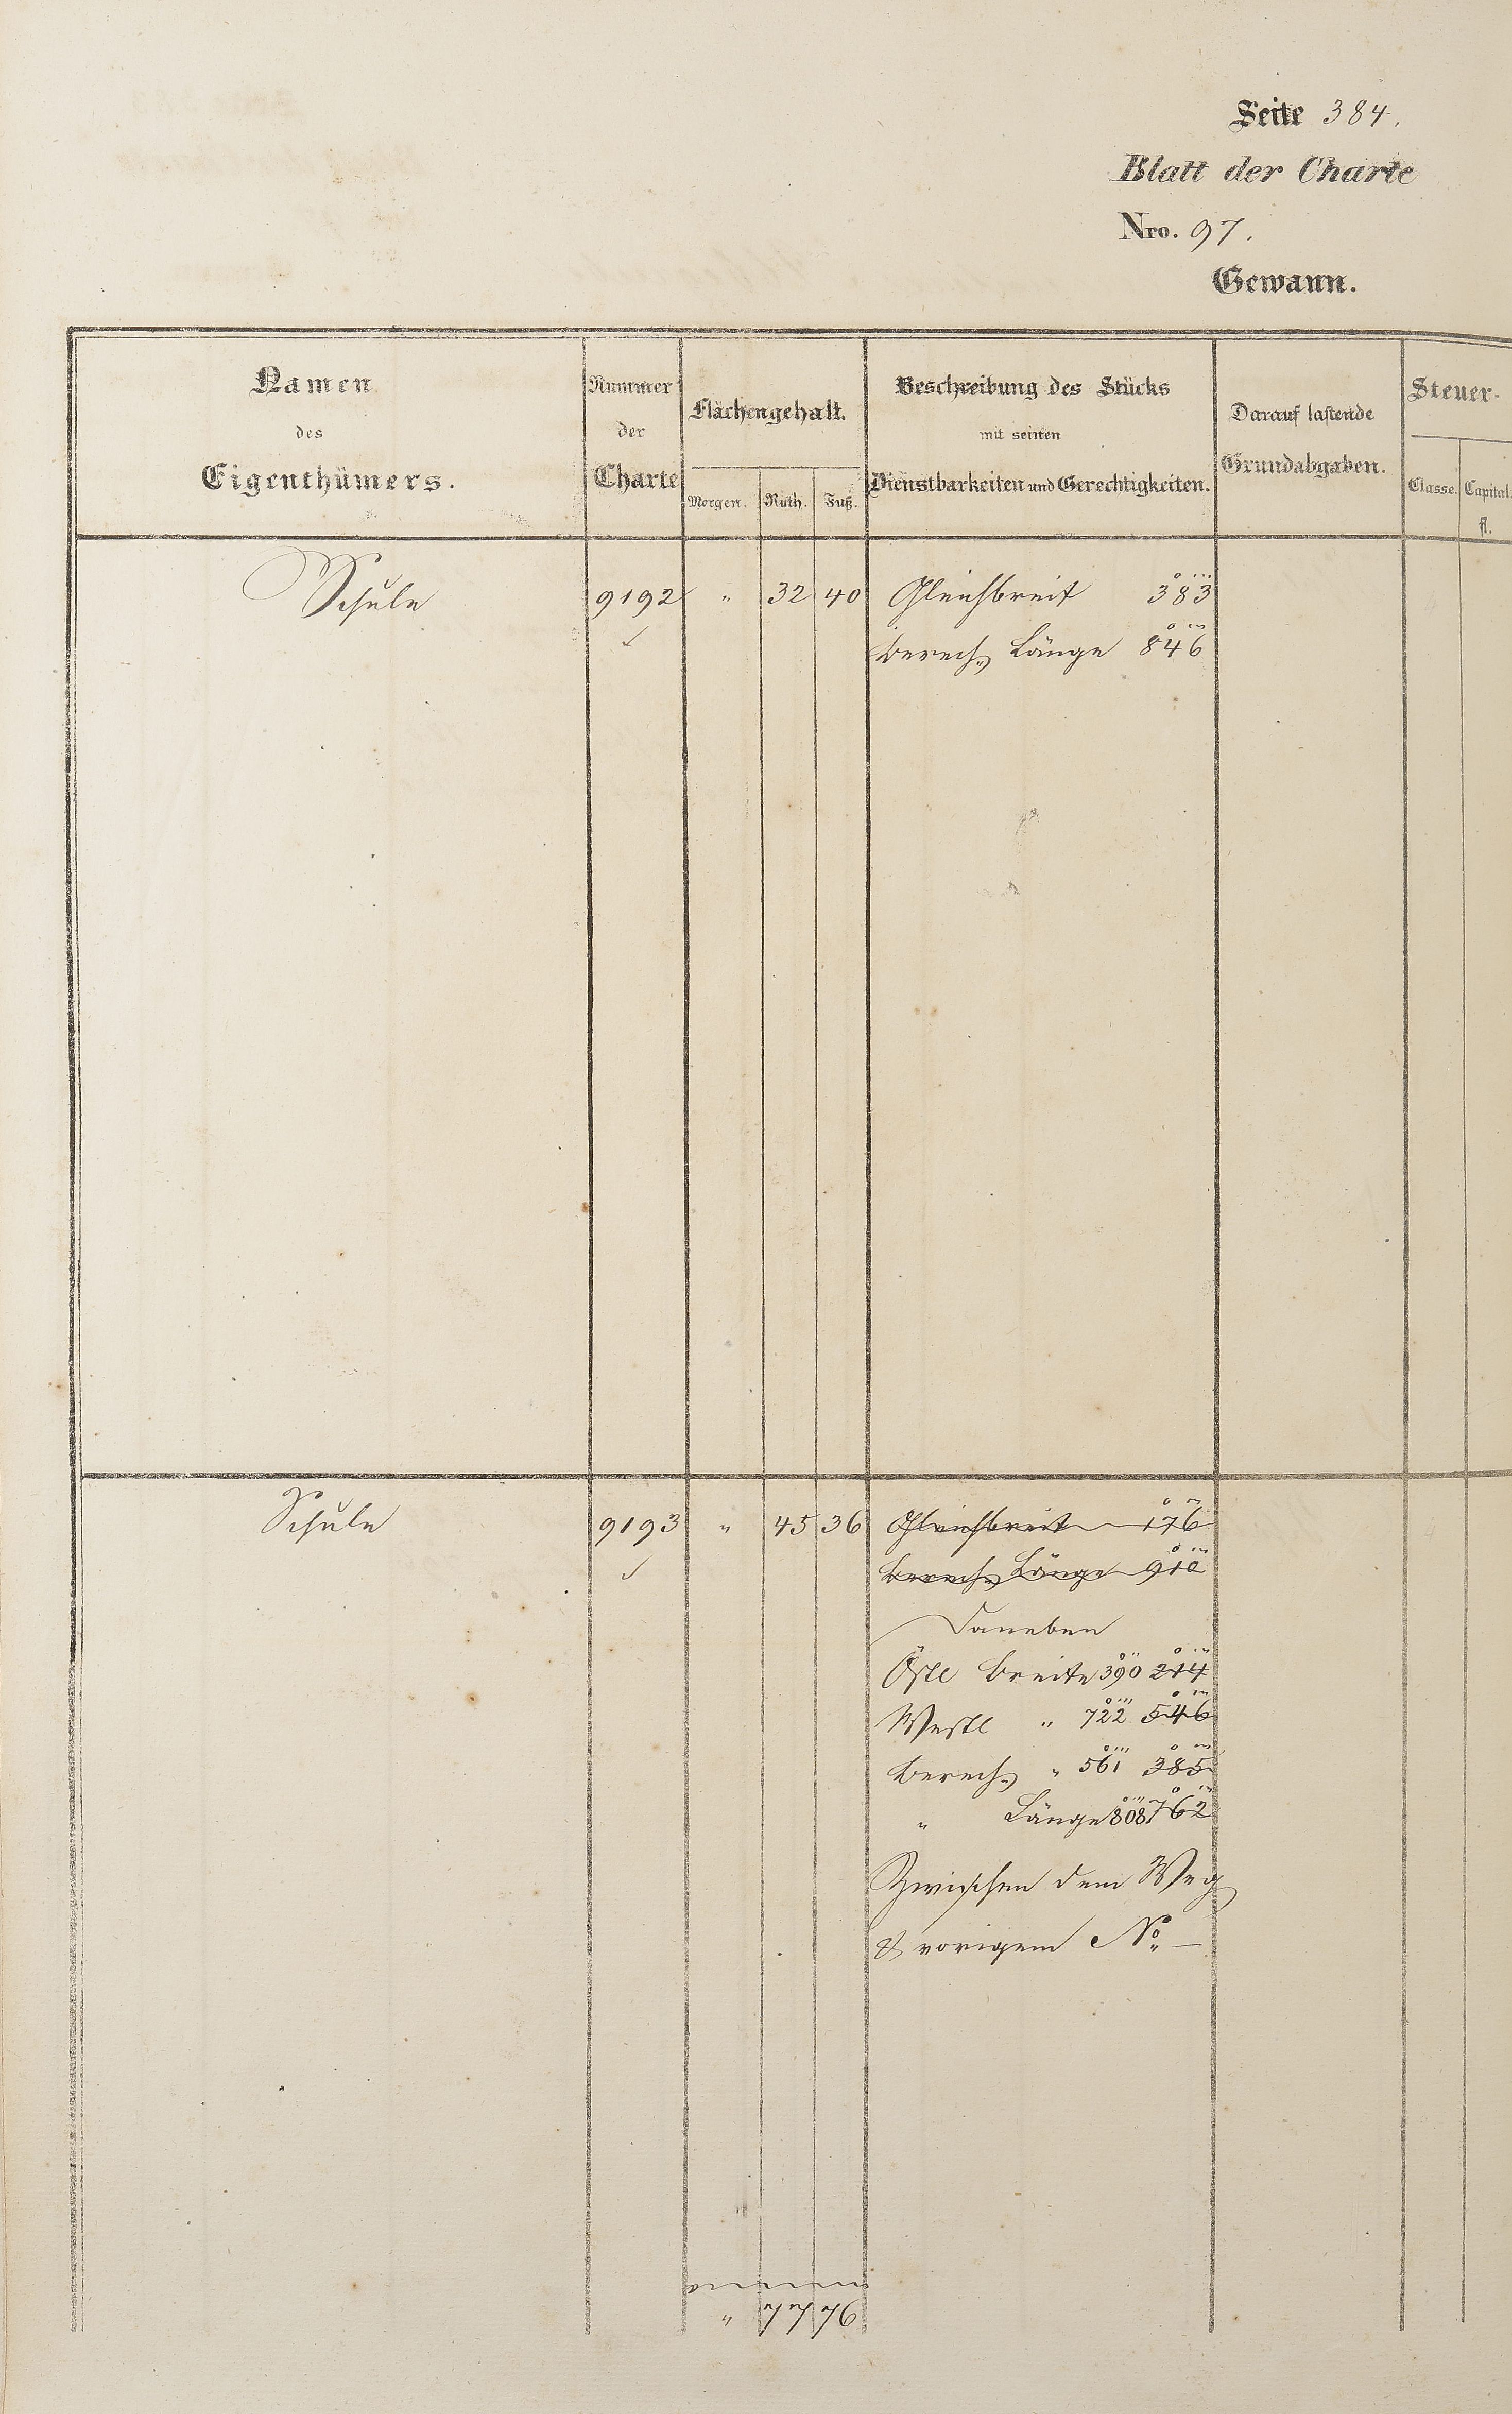 Seite 384.
Blatt der Charte
Nro. 97.
Gewann.
Namen des Eigenthümers.
Nummer der Charte
Flächengehalt.
Morgen. Ruth. Fuß.
Beschreibung des Stücks mit seinen Dienstbarkeiten und Gerechtigkeiten.
Darauf lastende Grundabgaben.
Steuer-
Classe. Capital. fl.
Schule 9192 " 32 40 Gleichbreit 383
berech. Länge 846
Schule 9193 " 45 36 Gleichbreit 176
berech. Länge 910
Daneben
Östl Breite 390 214
Westl " 722 546
berech. " 561 385
" Länge 808 762
Zwischen dem Weg
& vorigem No. —
" 77 76